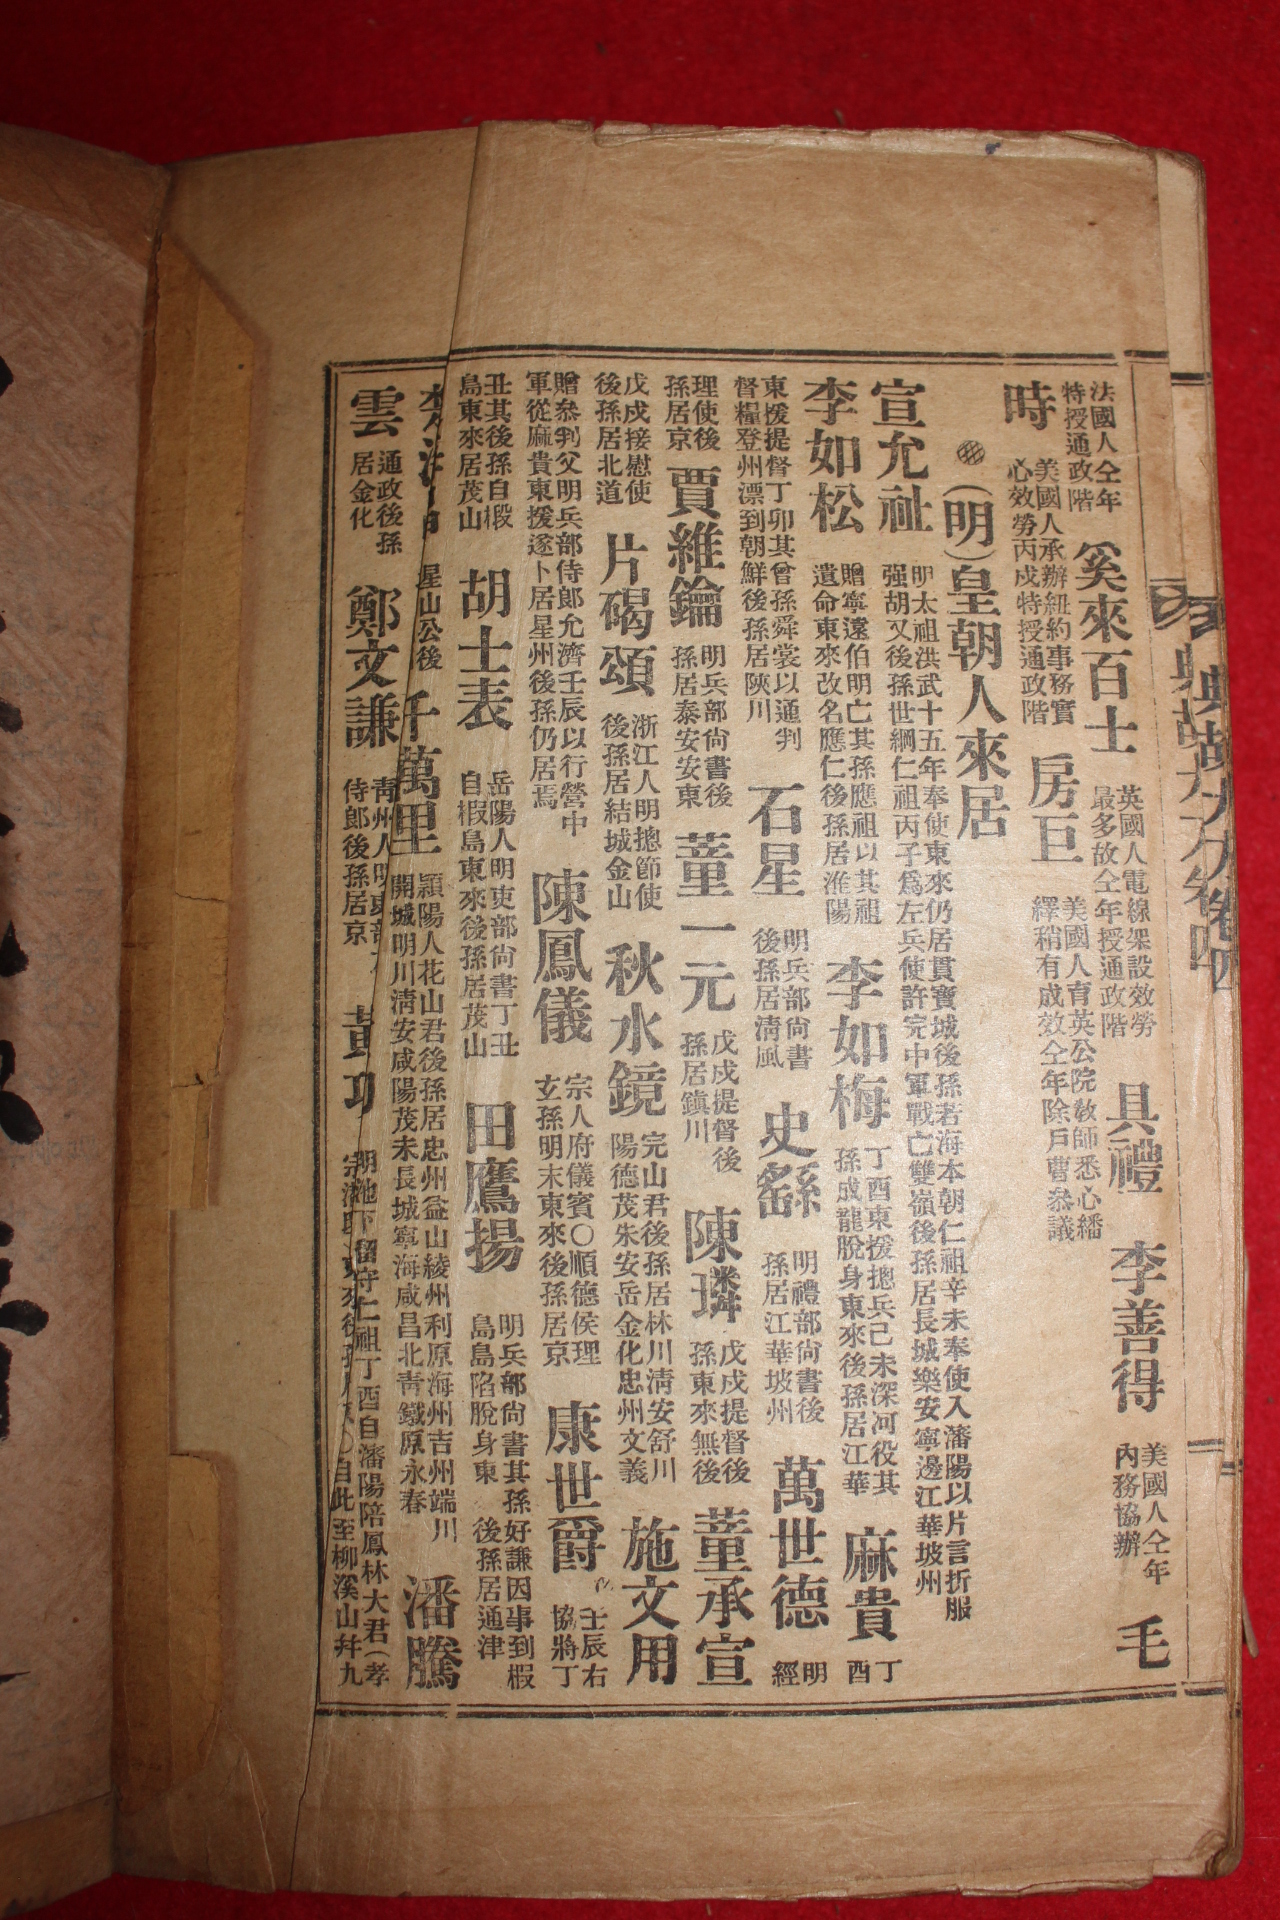 法國人仝年特授通政階 奚來百士 英國人電線架設效勞最多故仝年授通政階 具禮 李善得 美國人仝年內務協辦 毛
時 美國人承辦紐約事務實心效勞丙戌特授通政階 房巨 美國人育英公院敎師悉心繙繹稍有成效仝年除戶曹叅議
(明)皇朝人來居
宣允祉 明太祖洪武十五年奉使東來仍居貫寶城後孫若海本朝仁祖辛未奉使入瀋陽以片言折服强胡又後孫世綱仁祖丙子爲左兵使許完中軍戰亡雙嶺後孫居長城樂安寧邊江華坡州
李如松 贈寧遠伯明亡其孫應祖以其祖遺命東來改名應仁後孫居淮陽 李如梅 丁酉東援摠兵己未深河役其孫成龍脫身東來後孫居江華 麻貴 丁酉
東援提督丁卯其曾孫舜裳以通判督糧登州漂到朝鮮後孫居陜川 石星 明兵部尙書後孫居淸風 史繇 明禮部尙書後孫居江華坡州 萬世德 明經
理使後孫居京 賈維鑰 明兵部尙書後孫居泰安安東 董一元 戊戌提督後孫居鎭川 陳璘 戊戌提督後孫東來無後 董承宣
戊戌接慰使後孫居北道 片碣頌 浙江人明摠節使後孫居結城金山 秋水鏡 完山君後孫居林川淸安舒川陽德茂朱安岳金化忠州文義 施文用
贈叅判父明兵部侍郞允濟壬辰以行營中軍從麻貴東援遂卜居星州後孫仍居焉 陳鳳儀 宗人府儀賓〇順德侯理玄孫明末東來後孫居京 康世爵 壬辰右協將丁
丑其後孫自椴島東來居茂山 胡士表 岳陽人明吏部尙書丁丑自椵島東來後孫居茂山 田鷹揚 明兵部尙書其孫好謙因事到椵島島陷脫身東後孫居通津
星山公後 千萬里 潁陽人花山君後孫居忠州益山綾州利原海州吉州端川開城明川淸安咸陽茂朱長城寧海咸昌北靑鐵原永春 潘騰
雲 通政後孫居金化 鄭文謙 靑州人明吏部侍郞後孫居京 黃功 下留守仁祖丁酉自瀋陽陪鳳林大君(孝〇自此至柳溪山幷九